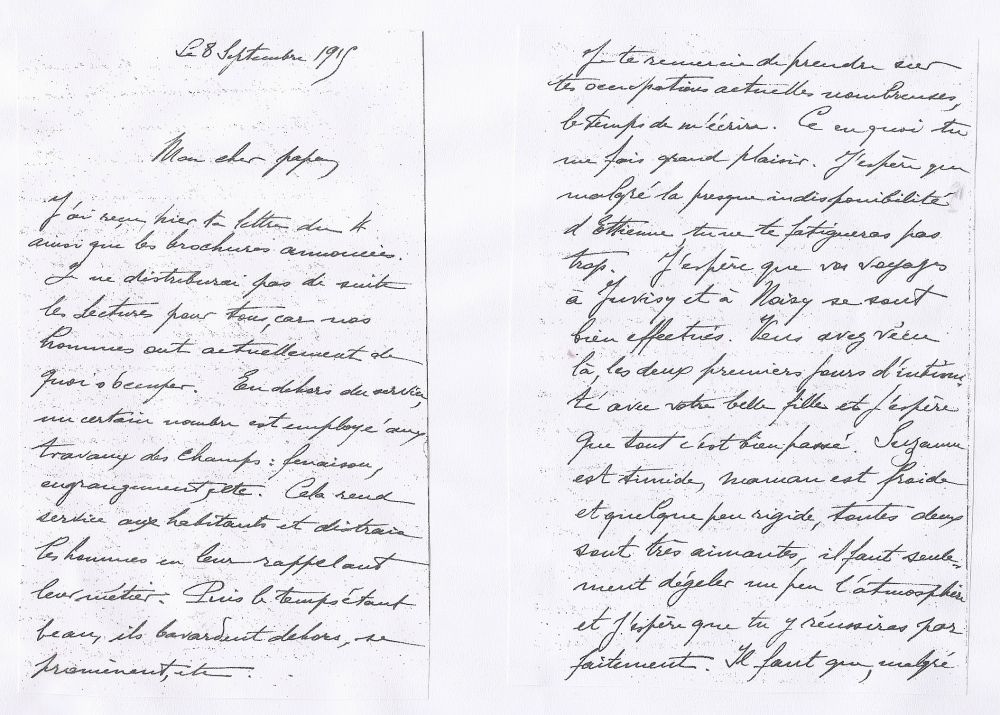 Le 8 Septembre 1915
Mon cher papa,
J'ai reçu hier ta lettre du 4
ainsi que les brochures annoncées.
Je ne distribuerai pas de suite
les lectures pour tous, car nos
hommes ont actuellement de
quoi s'occuper. En dehors du service,
un certain nombre est employé aux
travaux des champs : fenaison,
engrangement, etc. Cela rend
service aux habitants et distrait
les hommes en leur rappelant
leur métier. Puis le temps étant
beau, ils bavardent dehors, se
promènent, etc.
Je te remercie de prendre sur
tes occupations actuelles nombreuses,
le temps de m'écrire. Ce en quoi tu
me fais grand plaisir. J'espère que
malgré la presque indisponibilité
d'Etienne tu ne te fatigueras pas
trop. J'espère que vos voyages
à Juvisy et à Noisy se sont
bien effectués. Vous avez vécu
là, les deux premiers jours d'intimi-
té avec votre belle fille et j'espère
que tout c'est bien passé. Suzanne
est timide, maman est froide
et quelque peu rigide, toutes deux
sont très aimantes, il faut seule-
ment dégeler un peu l'atmosphère
et j'espère que tu y réussiras par
faitement. Il faut que, malgré